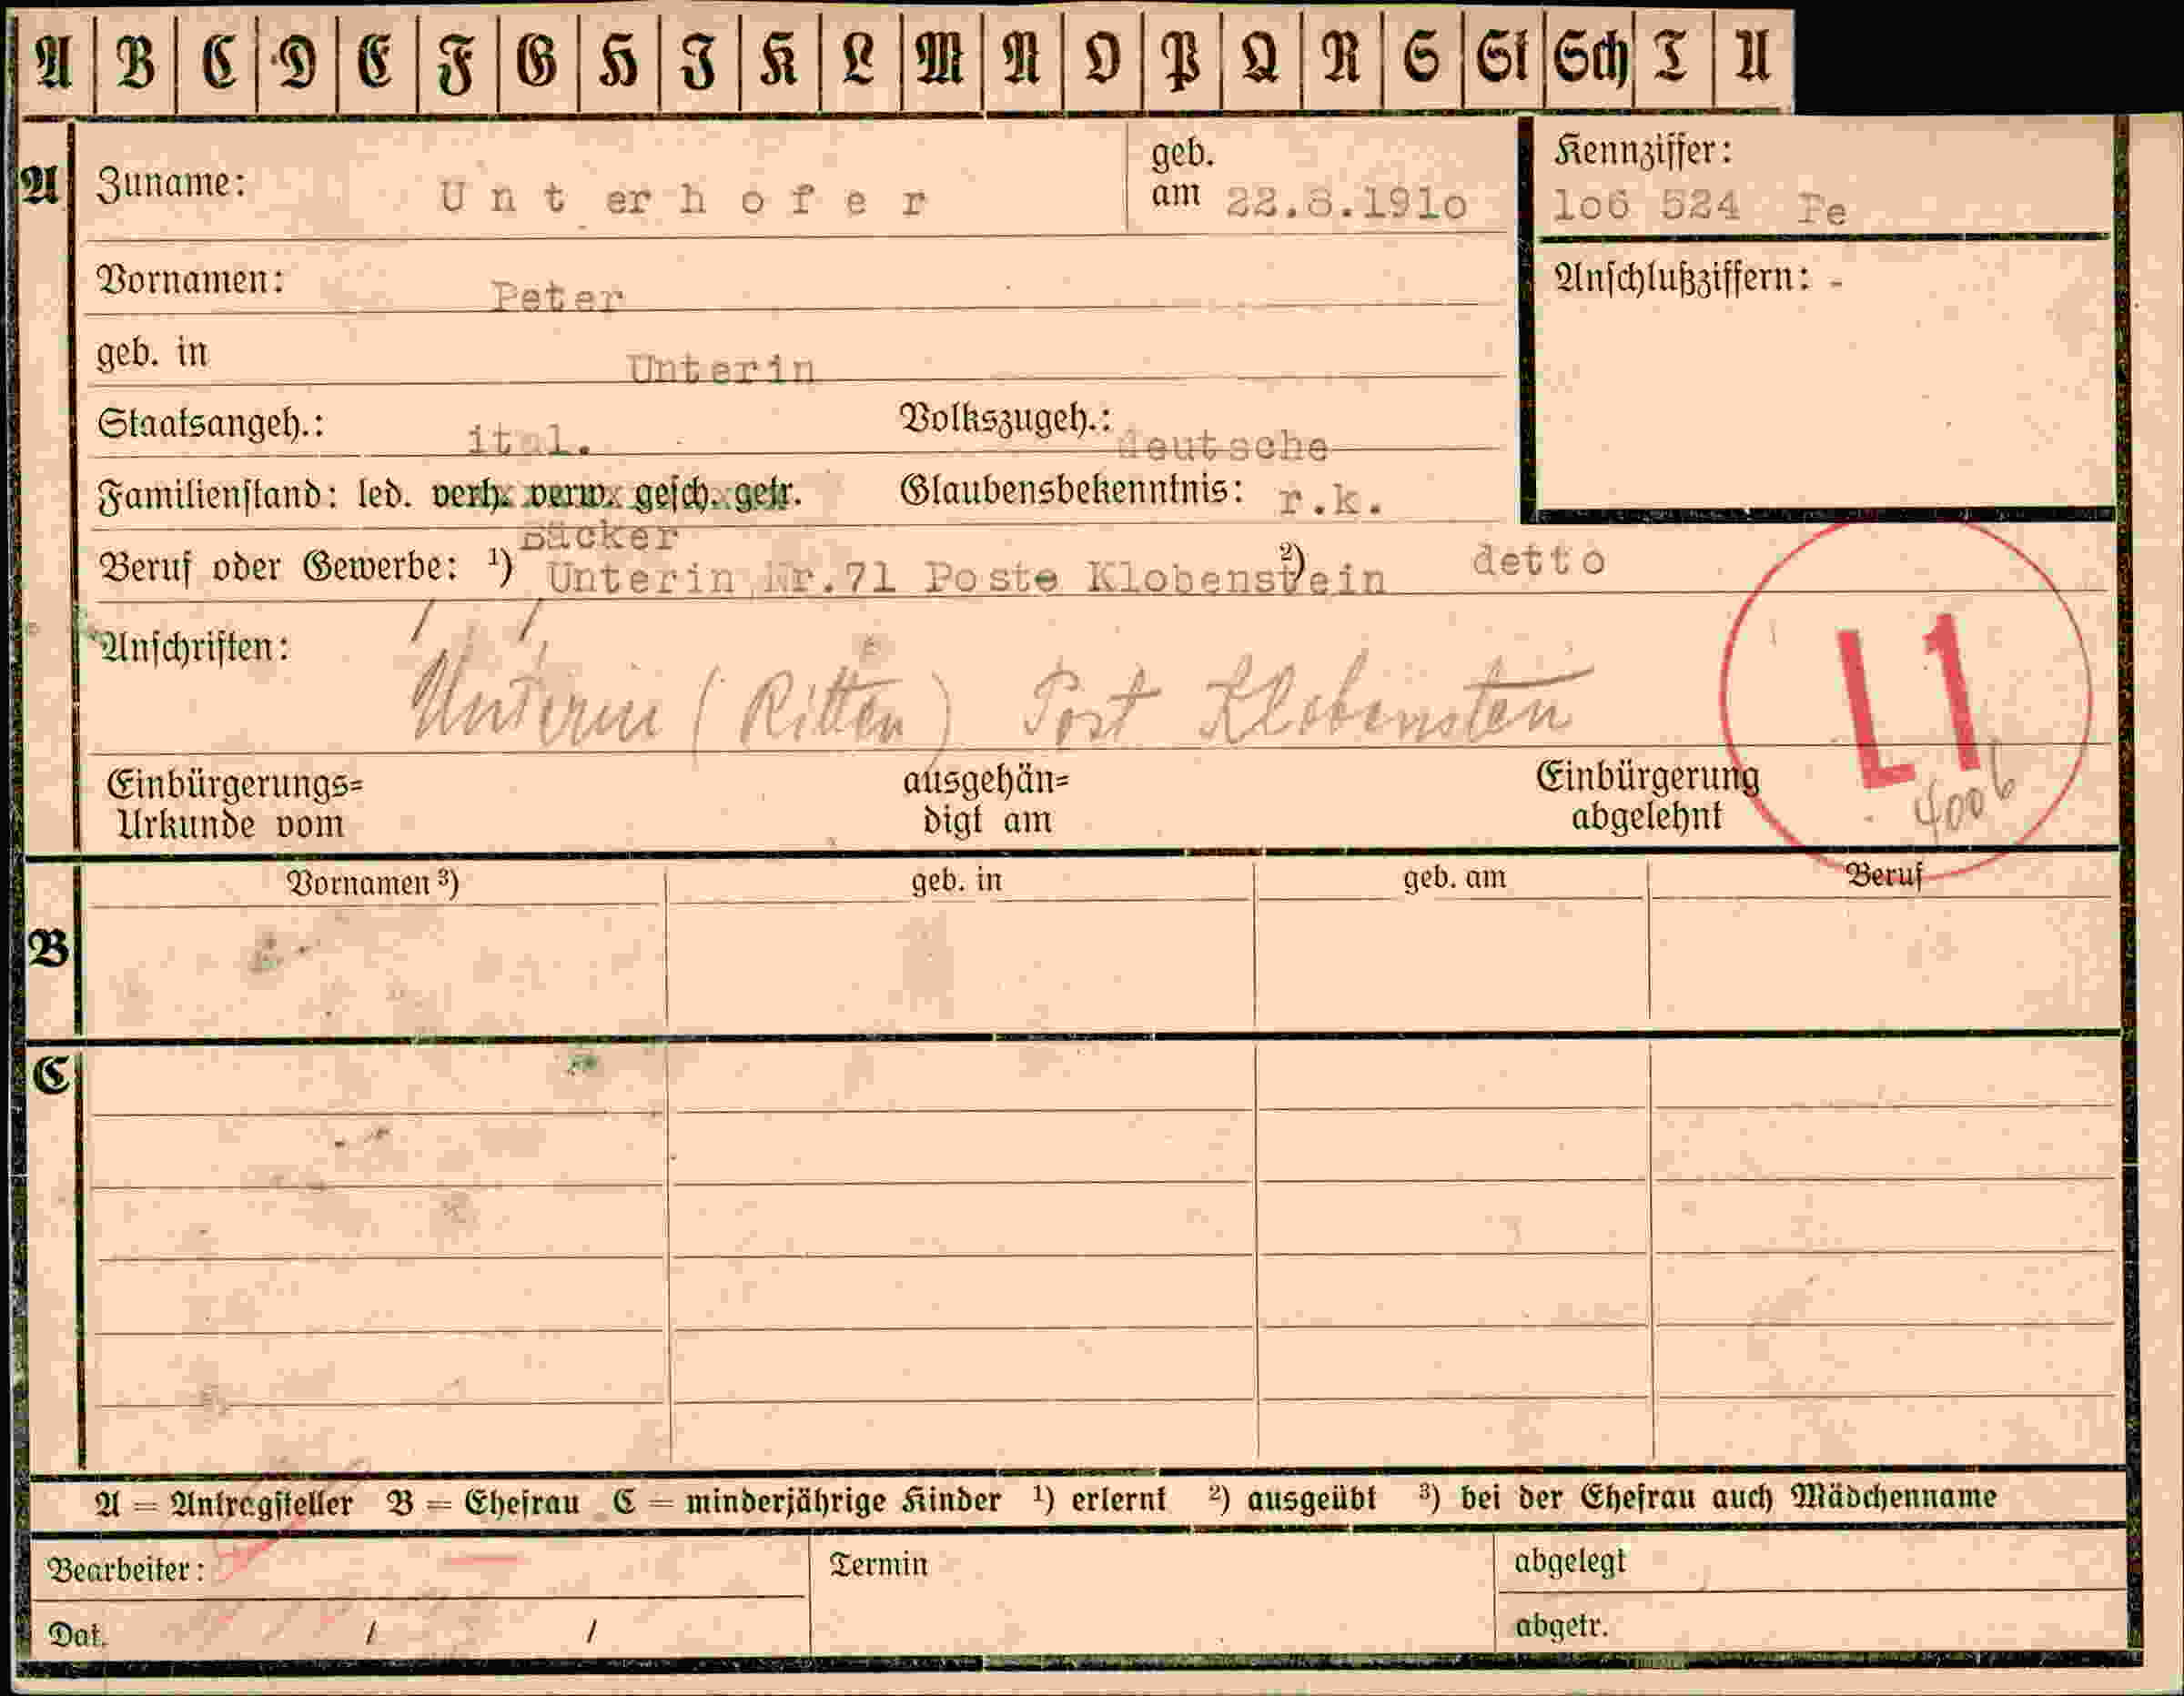 A B C D E F G H I K L M N O P Q R S St Sch T U
A Zuname: Unterhofer geb. am 22.8.191o Kennziffer:
1o6 524 Pe
Vornamen: Peter Anschlußziffern: -
geb. in Unterin
Staatsangeh.: ital. Volkszugeh.: deutsche
Familienstand: led. verh. verw. gesch. getr. Glaubensbekenntnis: r.k.
Bäcker
Beruf oder Gewerbe: ¹) Unterin Nr.71 Poste Klobenstein ²) detto
Anschriften: Unterin (Ritten) Post Klobenstein
L1
Einbürgerungs= Urkunde vom ausgehän= digt am Einbürgerung abgelehnt
Vornamen ³) geb. in geb. am Beruf
B
C
A = Antragsteller B = Ehefrau C = minderjährige Kinder ¹) erlernt ²) ausgeübt ³) bei der Ehefrau auch Mädchenname
Bearbeiter: Termin abgelegt
Dat. / / abgetr.